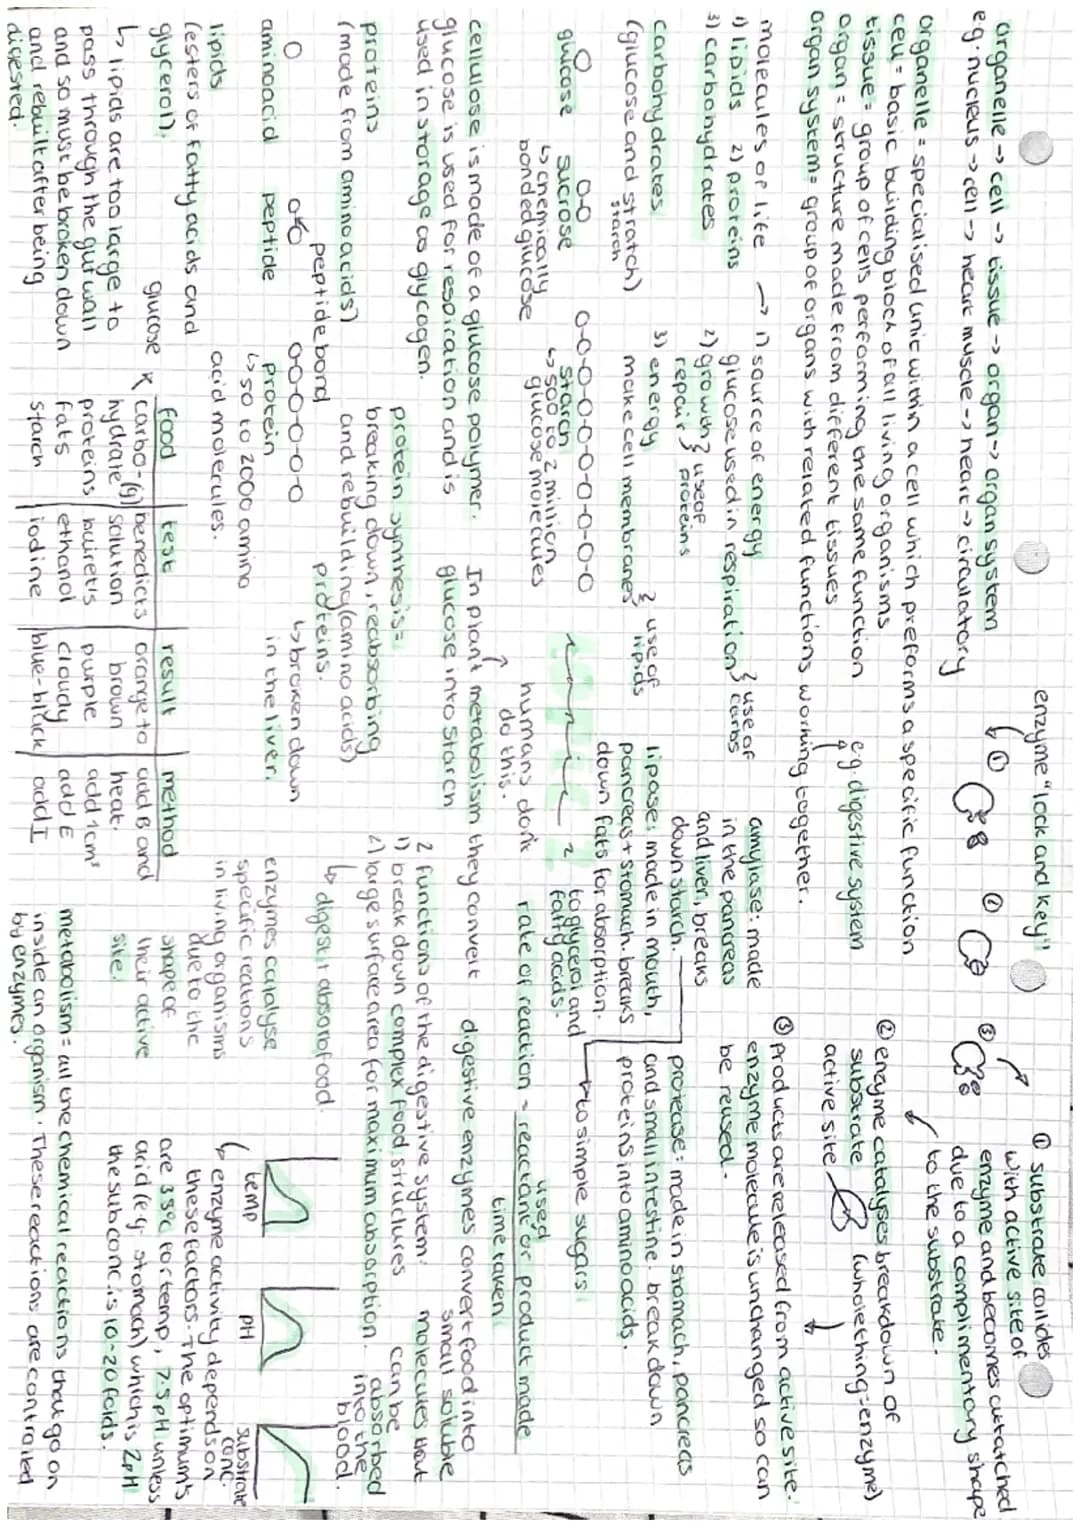 organelle → cell → tissue → organ → organ system
e.g. nucleus → cell → heart muscle → heart → circulatory
organelle = specialised unit within a cell which preforms a specific function
cell = basic building block of all living organisms
tissue = group of cells performing the same function
organ = structure made from different tissues
organ system = group of organs with related functions working together.
e.g. digestive system
molecules of life → 1) source of energy
1) lipids 2) proteins
3) carbohydrates
glucose used in respiration } use of carbs
2) growth } use of
repair } proteins
3) energy
make cell membranes } use of lipids
carbohydrates
(glucose and stratch)
starch
O O-O O-O-O-O-O-O-O-O-O
glucose sucrose starch
↳ chemically
bonded glucose
↳ 500 to 2 million
glucose molecules
cellulose is made of a glucose polymer.
glucose is used for respiration and is
used in storage as glycogen.
In plant metabolism they convert
glucose into starch
humans don't
do this.
proteins
(made from amino acids)
protein synthesis =
breaking down, reabsorbing
and rebuilding (amino acids)
proteins.
↳ broken down
in the liver.
peptide bond
aminoacid peptide protein
↳ 50 to 2000 amino
acid molecules.
lipids
(esters of fatty acids and
glycerol).
↳ lipids are too large to
pass through the gut wall
and so must be broken down
and rebuilt after being
digested.
glucose
food test result method
carbo-(g) benedicts orange to add B and
hydrate solution brown heat.
proteins buirett's purple add 1cm³
fats ethanol cloudy add E
starch iodine blue-black add I
TOPIC 2
enzyme "lock and key"
① ② ③
① substrate collides
with active site of
enzyme and becomes attatched
due to a complimentary shape
to the substrate.
② enzyme catalyses breakdown of
substrate
active site (whole thing - enzyme)
③ products are released from active site.
enzyme molecule is unchanged so can
be reused.
amylase: made
in the pancreas
and liver, breaks
down starch.
to simple sugars
lipase: made in mouth,
pancreas + stomach. breaks
down fats for absorption.
to glycerol and
fatty acids.
protease: made in stomach, pancreas
and small intestine. break down
proteins into amino acids.
rate of reaction = reactant used or product made
time taken
2 functions of the digestive system:
1) break down complex food structures
2) large surface area for maximum absorption.
↳ digest + absorb food.
digestive enzymes convert food into
small soluble
molecules that
can be
absorbed
into the
blood.
enzymes catalyse
specific reactions
in living organisms
due to the
shape of
their active
site.
temp pH substrate conc.
↳ enzyme activity depends on
these factors. The optimum's
are 35°C for temp, 7.5 pH unless
acid (e.g. stomach) which is 2pH
the sub conc. is 10-20 folds.
metabolism = all the chemical reactions that go on
inside an organism. These reactions are controlled
by enzymes.